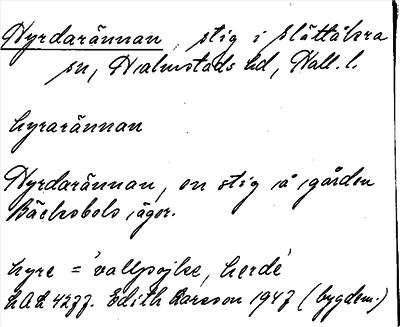 Hyrdarännan, stig i Slättåkra
sn, Halmstads hd, Hall. l.
hyrarännan
Hyrdarännan, en stig å gården
Bäckabols ägor.
hyre = 'vallpojke, herde'
LAL 4277. Edith Larsson 1947 (bygdem.)